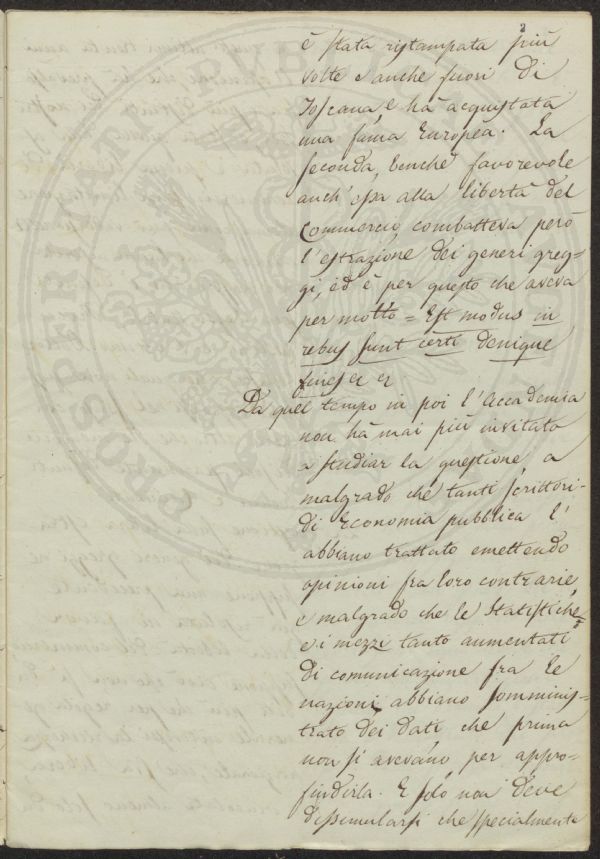 2
è stata ristampata più
volte e anche fuori di
Toscana, e hà acquistata
una fama Europea. La
seconda, benchè favorevole
anch'essa alla libertà del
Commercio, combatteva però
l'estrazione dei generi greg-
gi, ed è per questo che aveva
per motto = Est modus in
rebus sunt certi denique
fines &c &c
Da quel tempo in poi l'Accademia
non hà mai più invitato
a studiar la questione, a
malgrado che tanti scrittori
di Economia pubblica l'
abbiano trattato emettendo
opinioni fra loro contrarie,
e malgrado che le Statistiche,
e i mezzi tanto aumentati
di comunicazione fra le
nazioni, abbiano somminis-
trato dei dati, che prima
non si avevano per appro-
findirla. E solo non deve
dissimularsi che specialmente